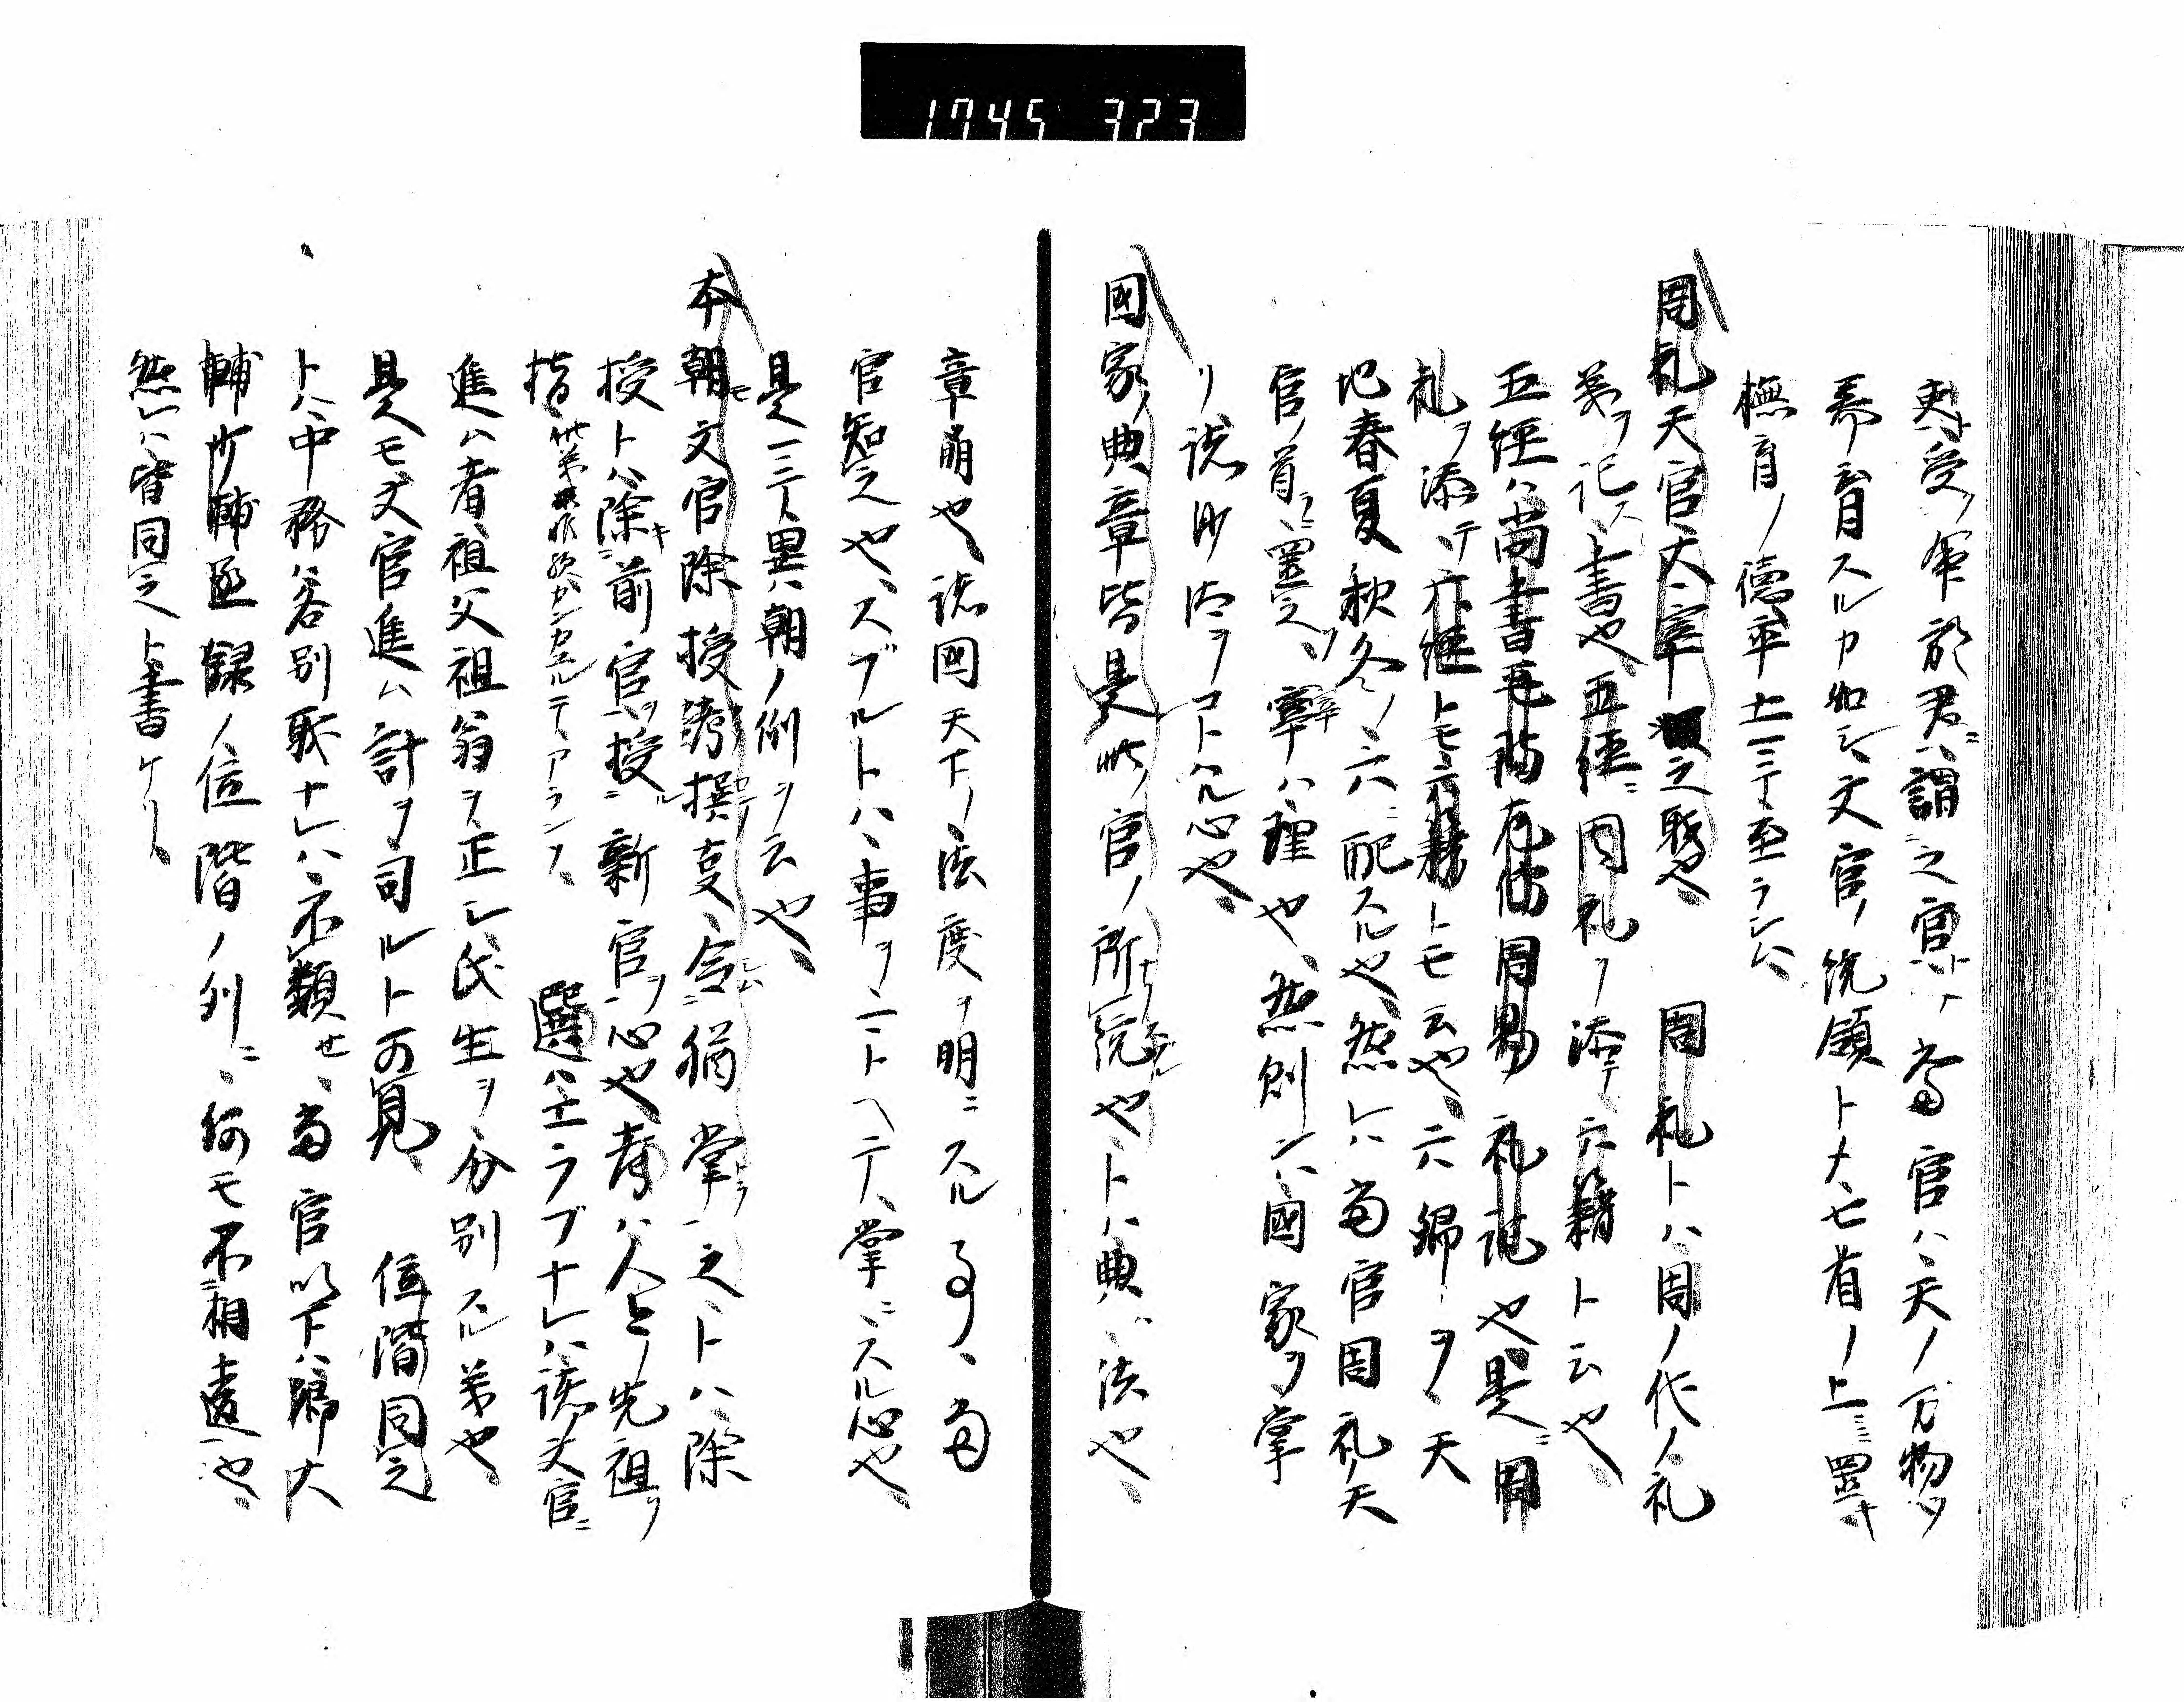 1745 323
吏受軍於君ニ謂之官ト、當官ハ天ノ万物ヲ
養育スルカ如シ、文官ノ統領トメ七省ノ上ニ置キ
撫育ノ德率土ニ至ラシム、
周礼天官大宰之職也、周礼トハ周ノ代ノ礼
義ヲ記ス書也、五経ニ周礼ヲ添テ六籍ト云也、
五経ハ尚書毛詩左傳周易礼記也、是ニ周
礼ヲ添テ六経トモ六籍トモ云也、六卿ヲ、天
地春夏秋冬ノ六ニ配スル也、然レハ當官周礼天
官ノ首ニ置之、宰ハ理也、然則ンハ國家ヲ掌
リ說沙汰ヲコトハル心也、
國家ノ典章皆是此ノ官ノ所統也、トハ典ハ法也、
章ハ明也、諸國天下ノ法度ヲ明ニスル事、當
官知之也、スブルトハ、事ヲ一ニトヘテ、掌ニスル心也、
是ニテ異朝ノ例ヲ云也、
本朝モ文官除授考撰支、令猶掌之トハ除
授トハ除キ前官ヲ授ル新官ヲ心也、考ハ人々ノ先祖ヲ
指、選ハエラブナレハ諸文官ニ
進ハ者祖父祖翁ヲ正シ氏生ヲ分別スル義也、
是モ文官進ム計ヲ司ルト可見、位階同之
トハ、中務ハ各別職ナレハ不類せ、當官以下ハ卿大
輔少輔丞録ノ位階ノ列ニ、何モ不相違也、
然レハ皆同之ト書ケリ、